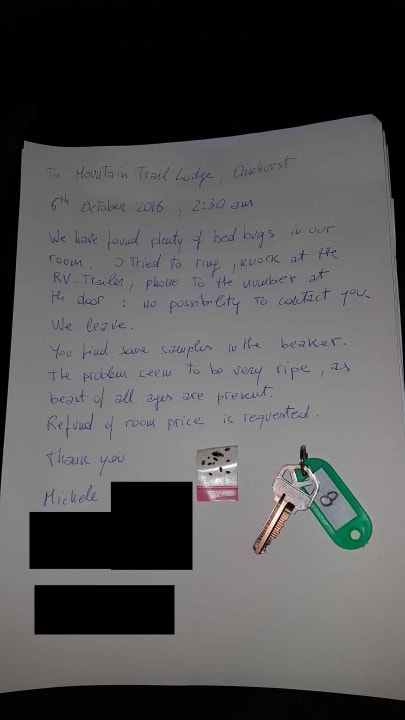 To Mountain Trail Lodge, Oakhurst
6th October 2016, 2:30 am
We have found plenty of bed bugs in our
room. I tried to ring, knock at the
RV-Trailer, phone to the number at
the door : no possibility to contact you.
We leave.
You find some samples in the beaker.
The problem seem to be very ripe, as
beast of all ages are present.
Refund of room price is requested.
Thank you
Michele
8